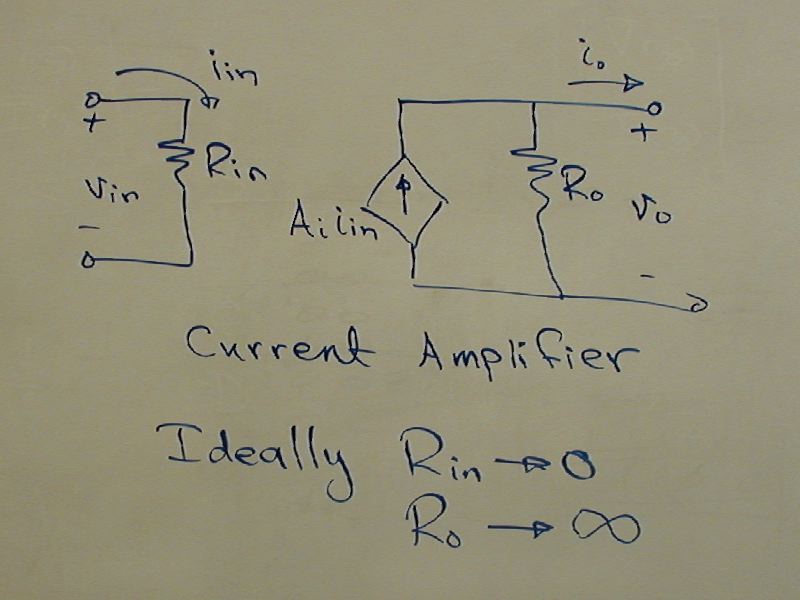 iin
io
+
+
Rin
Ro
vin
vo
Aiiin
-
-
Current Amplifier
Ideally Rin → 0
Ro → ∞